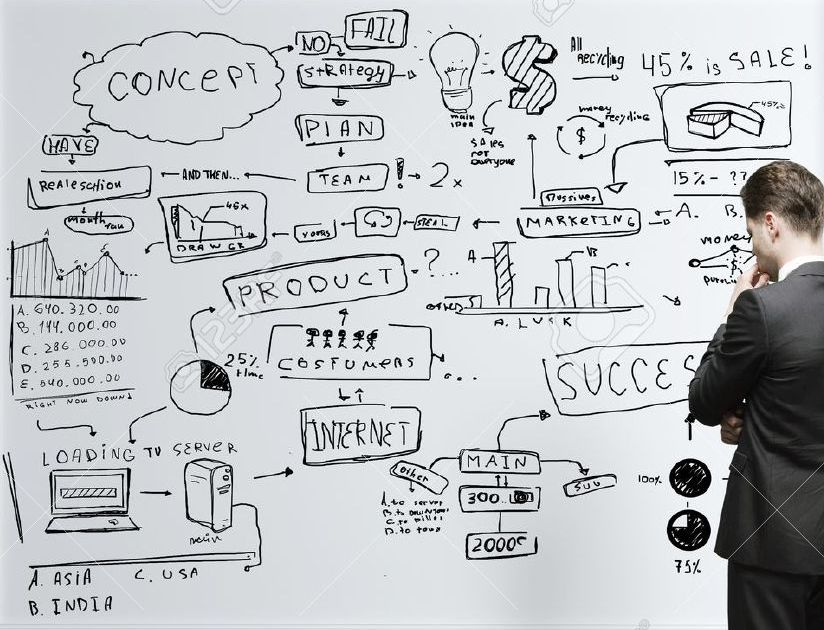 CONCEPT
NO
FAIL
STRATEGY
PLAN
TEAM
2x
AND THEN...
HAVE
REALESCTION
MONTH
main
idea
SALES
NOT
everyone
All
Recycling
45% is SALE!
money
recycling
$
45%
15% - ??
Massives
MARKETING
A. B.
STEAL
YOURS
45%
DRAW GR
PRODUCT
?...
A
VB
OTHERS
A. LUCK
MONEY
$
A. 640.320.00
B. 144.000.00
C. 286.000.00
D. 255.500.00
E. 540.000.00
RIGHT NOW DOWN
25%
time
COSTUMERS
...
SUCCES
INTERNET
LOADING TO SERVER
MAIN
other
SUB
300
2000
A. to server
100%
75%
A. ASIA
C. USA
B. INDIA